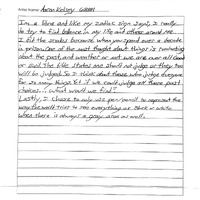 Artist Name: Aaron Kelsay Gibson
I'm a Libra and like my zodiac sign says, I really
do try to find balance in my life and others around me.
I did the scales because when you spend over a decade
in prison, one of the most thought about things is ruminating
about the past, and whether or not we are over all Good
or Evil. The bible states one should not judge or they too
will be judged. So I think about those who judge everyone
for so many things. Yet if we could judge all those past
choices... what would we find?
Lastly, I choose to only use pen/pencil to represent the
way the world tries to see everything as Black or White
when there is always a gray area as well.